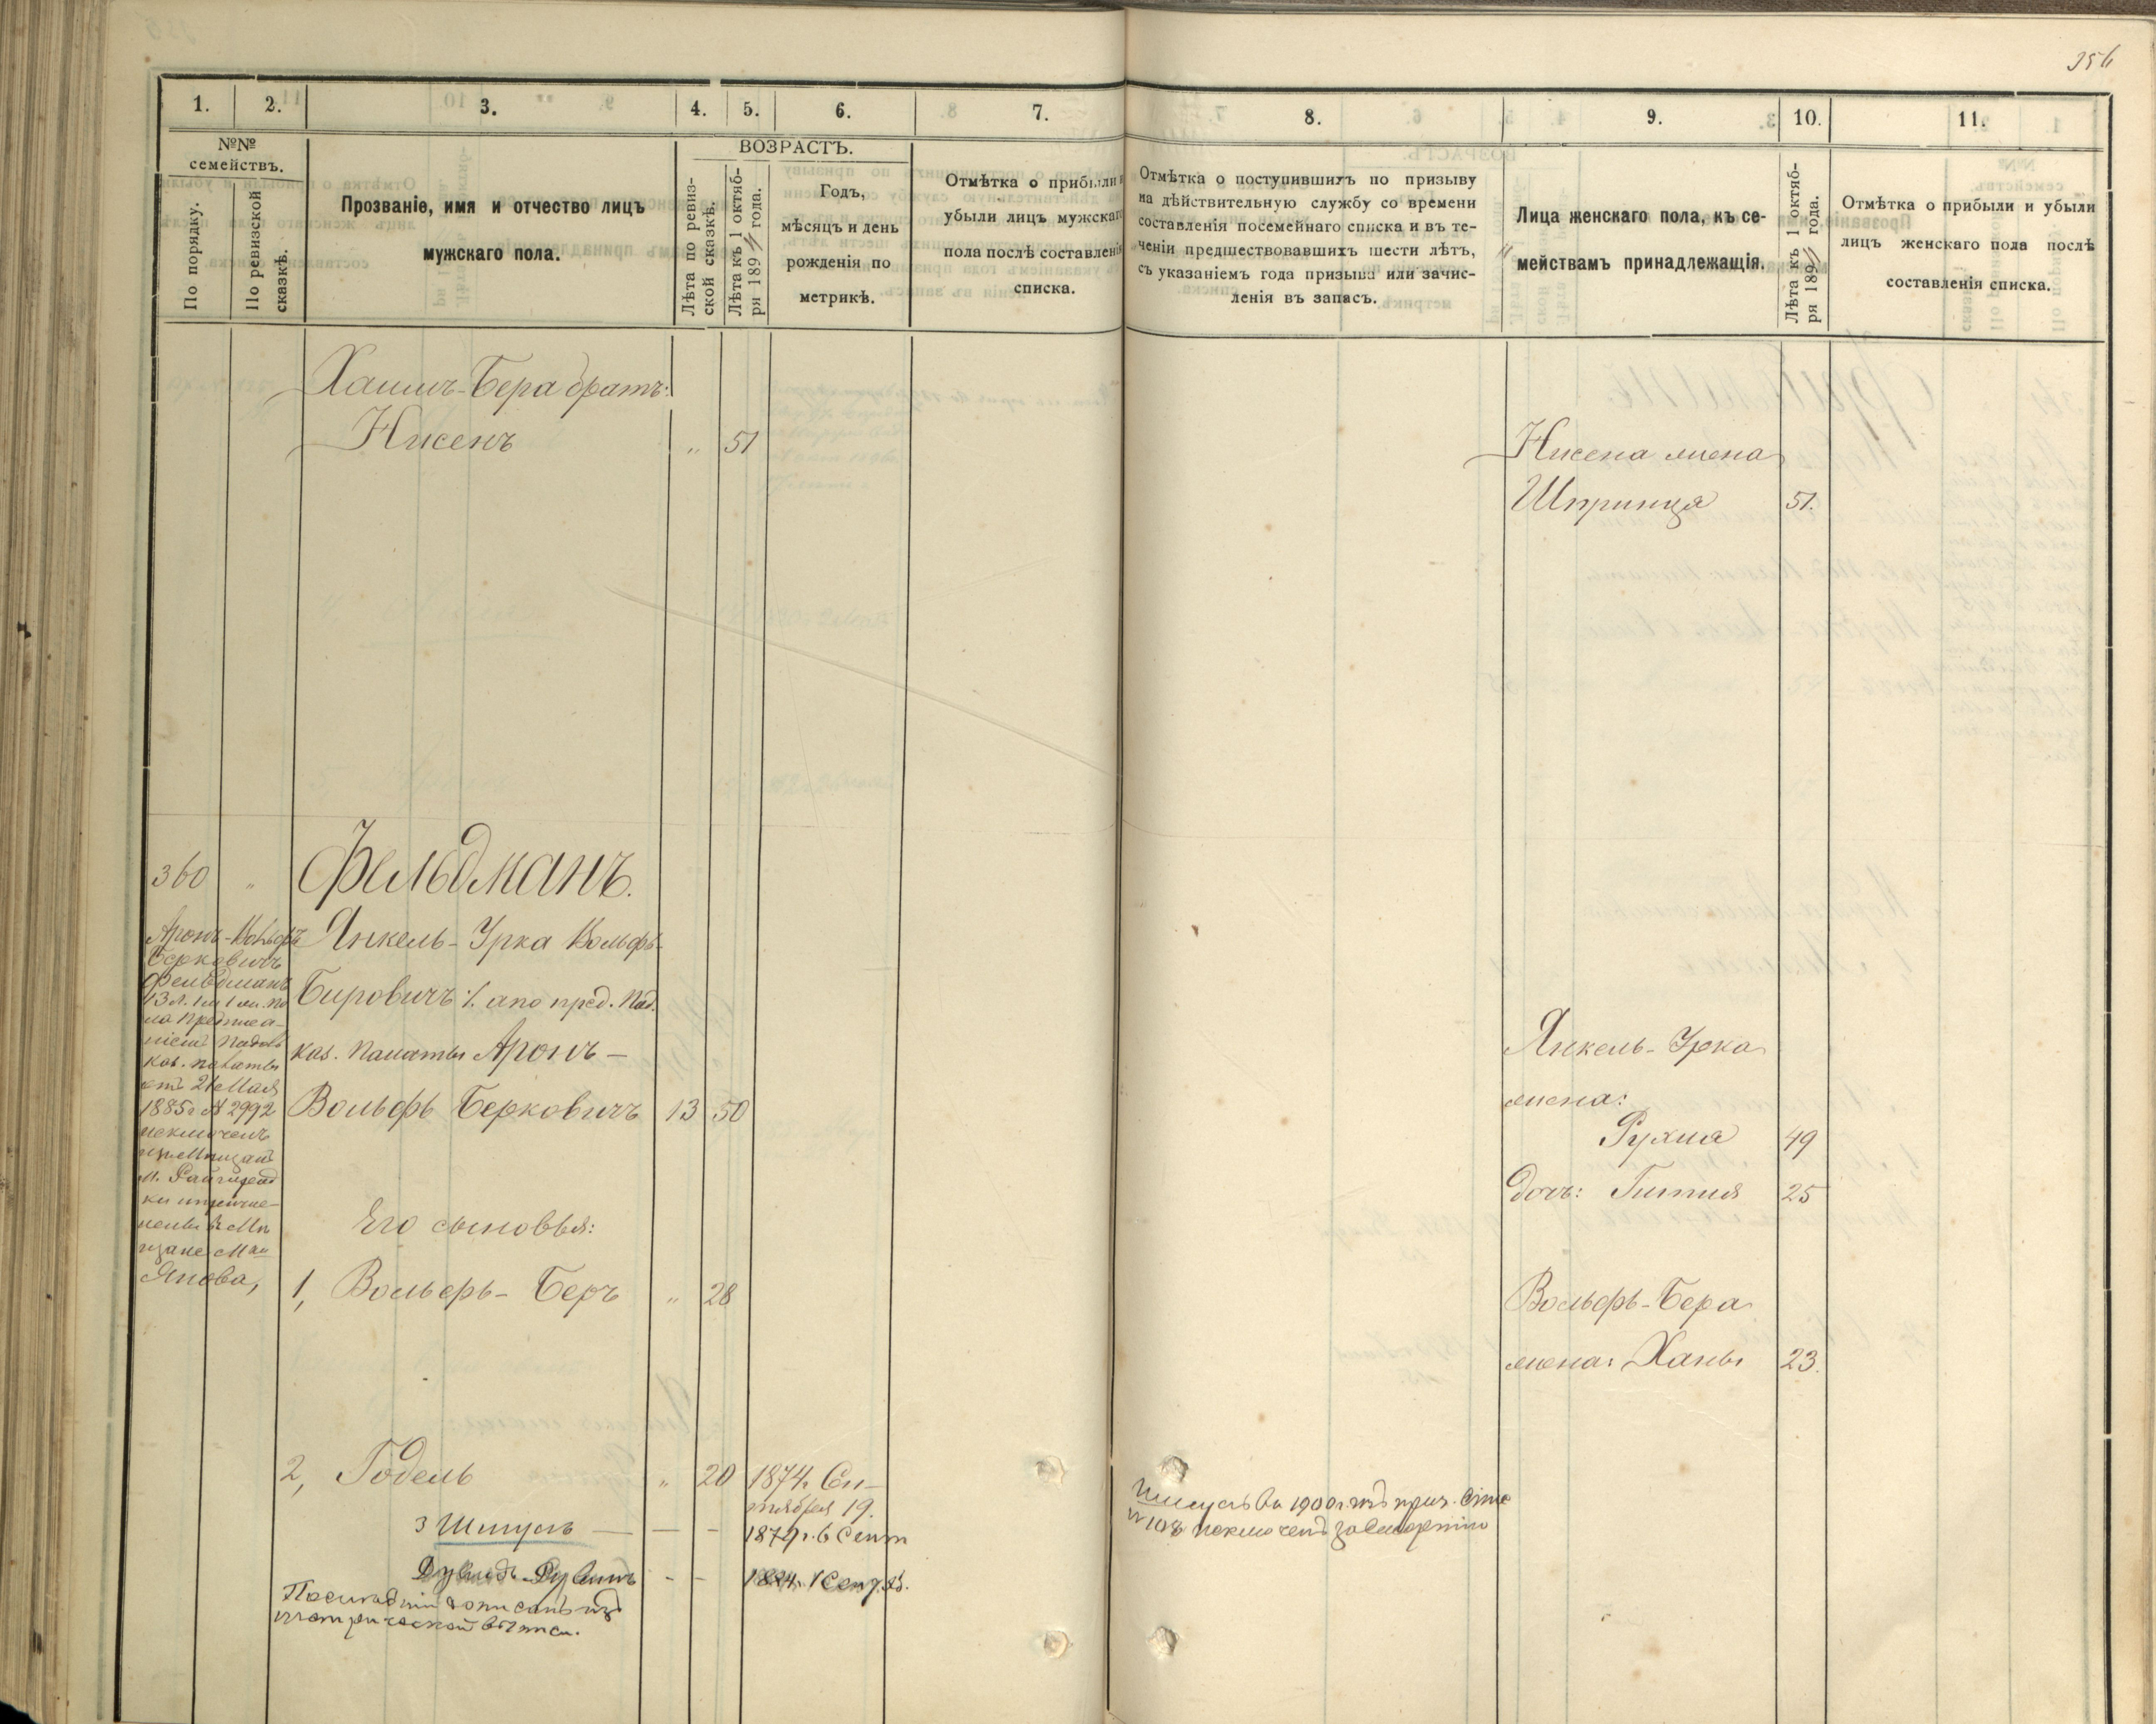 356
1. 2. 3. 4. 5. 6. 7. 8. 9. 10. 11.
№№ семействъ.
По порядку.
По ревизской сказкѣ.
Прозваніе, имя и отчество лицъ
мужскаго пола.
ВОЗРАСТЪ.
Лѣта по ревиз-
ской сказкѣ.
Лѣта къ 1 октяб-
ря 1894 года.
Годъ,
мѣсяцъ и день
рожденія по
метрикѣ.
Отмѣтка о прибыли и
убыли лицъ мужскаго
пола послѣ составленія
списка.
Отмѣтка о поступившихъ по призыву
на дѣйствительную службу со времени
составленія посемейнаго списка и въ те-
ченіи предшествовавшихъ шести лѣтъ,
съ указаніемъ года призыва или зачис-
ленія въ запасъ.
Лица женскаго пола, къ се-
мействамъ принадлежащія.
Лѣта къ 1 октяб-
ря 1894 года.
Отмѣтка о прибыли и убыли
лицъ женскаго пола послѣ
составленія списка.
Хаимъ-Бера братъ:
Нисенъ " 51
Нисена жена
Шпринца 51.
360 " Фельдманъ.
Аронъ-Вольфъ
Берковичъ
Фельдманъ
13 л.
Предписа-
ніемъ Подол.
каз. палаты
отъ 21 Мая
1885 г № 2992
исключенъ
изъ Мѣщанъ
м.
ки и причис-
ленъ въ Мѣ
щане
Янова,
Янкель-Урка Вольфъ-
Бировичъ ⁒ а по пред. Под.
каз. палаты Аронъ-
Вольфъ Берковичъ 13 50
Янкель-Урка
жена:
Рухля 49
дочь: Гитля 25
Его сыновья:
1, Вольфъ-Беръ " 28
Вольфъ-Бера
жена: Ханы 23.
2, Годель " 20 1874 г. Сен-
тября 19.
3 Шмуль — — – 1879 г. 6 Сент
Шмуль въ 1900 г. изъ приз.
исключенъ за смертію
Дувидъ Рувинъ - - 1884 г. 1
Послѣдній дописанъ изъ
метрической выписи.